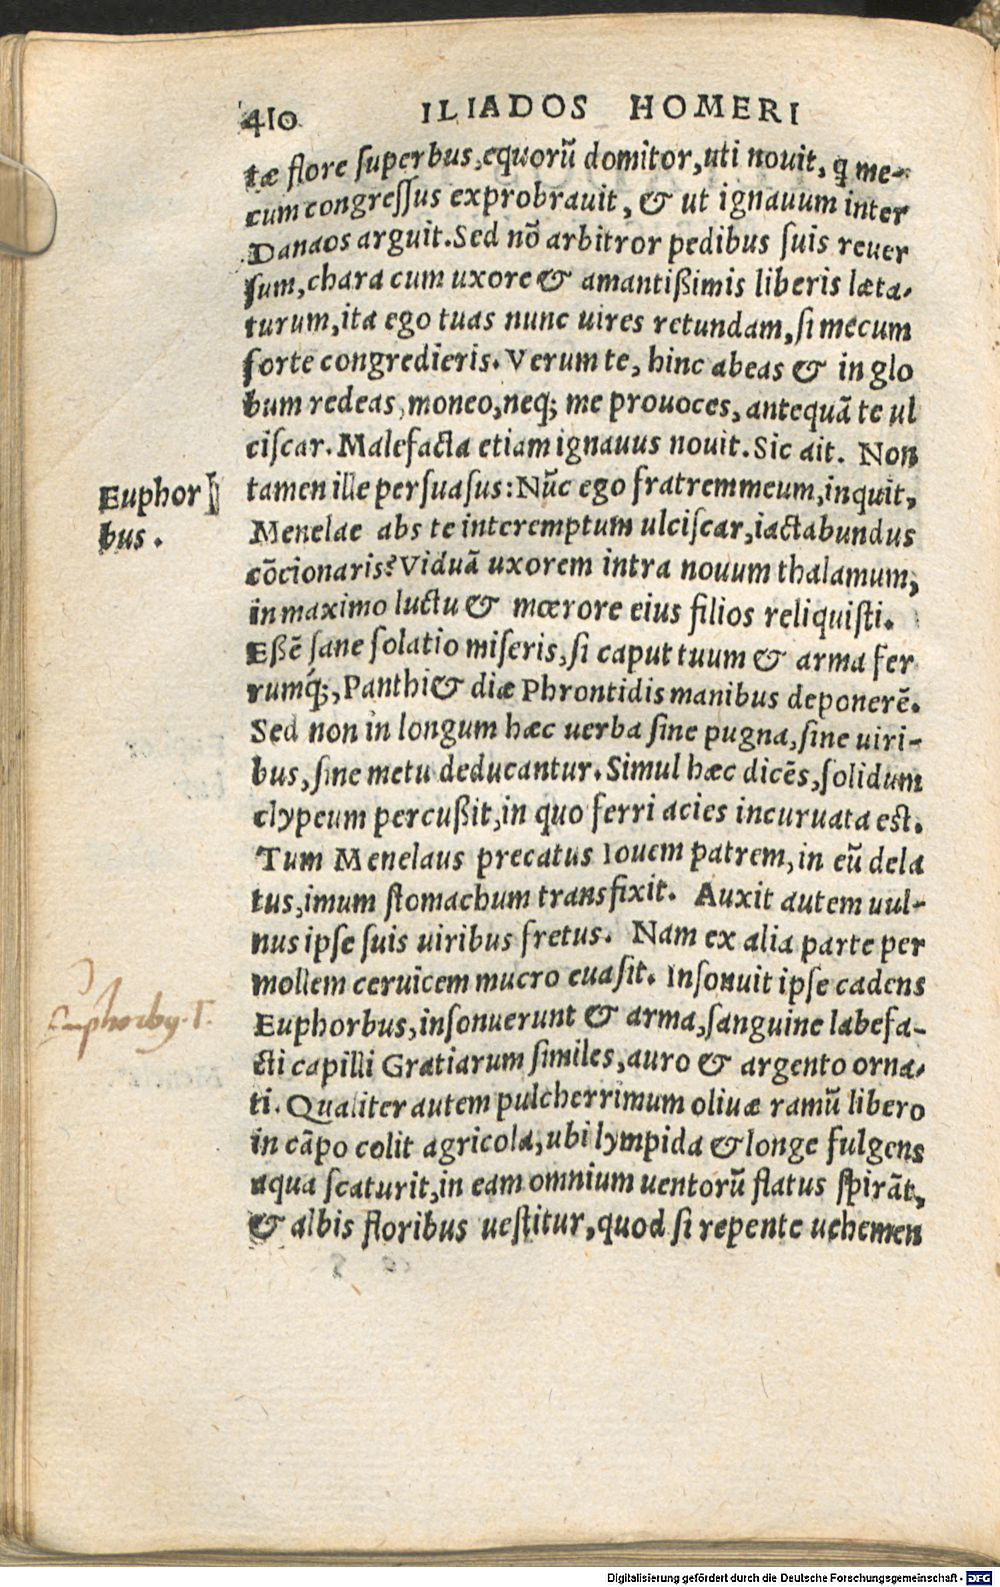 410 ILIADOS HOMERI
tæ flore superbus, equorũ domitor, uti nouit, q̃ me-
cum congressus exprobrauit, & ut ignauum inter
Danaos arguit. Sed nõ arbitror pedibus suis reuer
sum, chara cum uxore & amantißimis liberis læta-
turum, ita ego tuas nunc uires retundam, si mecum
forte congredieris. Verum te, hinc abeas & in glo
bum redeas, moneo, neq; me prouoces, antequã te ul
ciscar. Malefacta etiam ignauus nouit. Sic ait. Non
Euphor
bus.
tamen ille persuasus: Nũc ego fratrem meum, inquit,
Menelae abs te interemptum ulciscar, iactabundus
cõcionaris? Viduã uxorem intra nouum thalamum,
in maximo luctu & mœrore eius filios reliquisti.
Eßẽ sane solatio miseris, si caput tuum & arma fer
rumq́;, Panthi & diæ Phrontidis manibus deponerẽ.
Sed non in longum hæc uerba sine pugna, sine uiri-
bus, sine metu deducantur. Simul hæc dicẽs, solidum
clypeum percußit, in quo ferri acies incuruata est.
Tum Menelaus precatus Iouem patrem, in eũ dela
tus, imum stomachum transfixit. Auxit autem uul-
nus ipse suis uiribus fretus. Nam ex alia parte per
mollem ceruicem mucro euasit. Insonuit ipse cadens
Euphorbus, insonuerunt & arma, sanguine labefa-
cti capilli Gratiarum similes, auro & argento orna-
ti. Qualiter autem pulcherrimum oliuæ ramũ libero
in cãpo colit agricola, ubi lympida & longe fulgens
aqua scaturit, in eam omnium uentorũ flatus spirãt,
& albis floribus uestitur, quod si repente uehemen
Digitalisierung gefördert durch die Deutsche Forschungsgemeinschaft - DFG